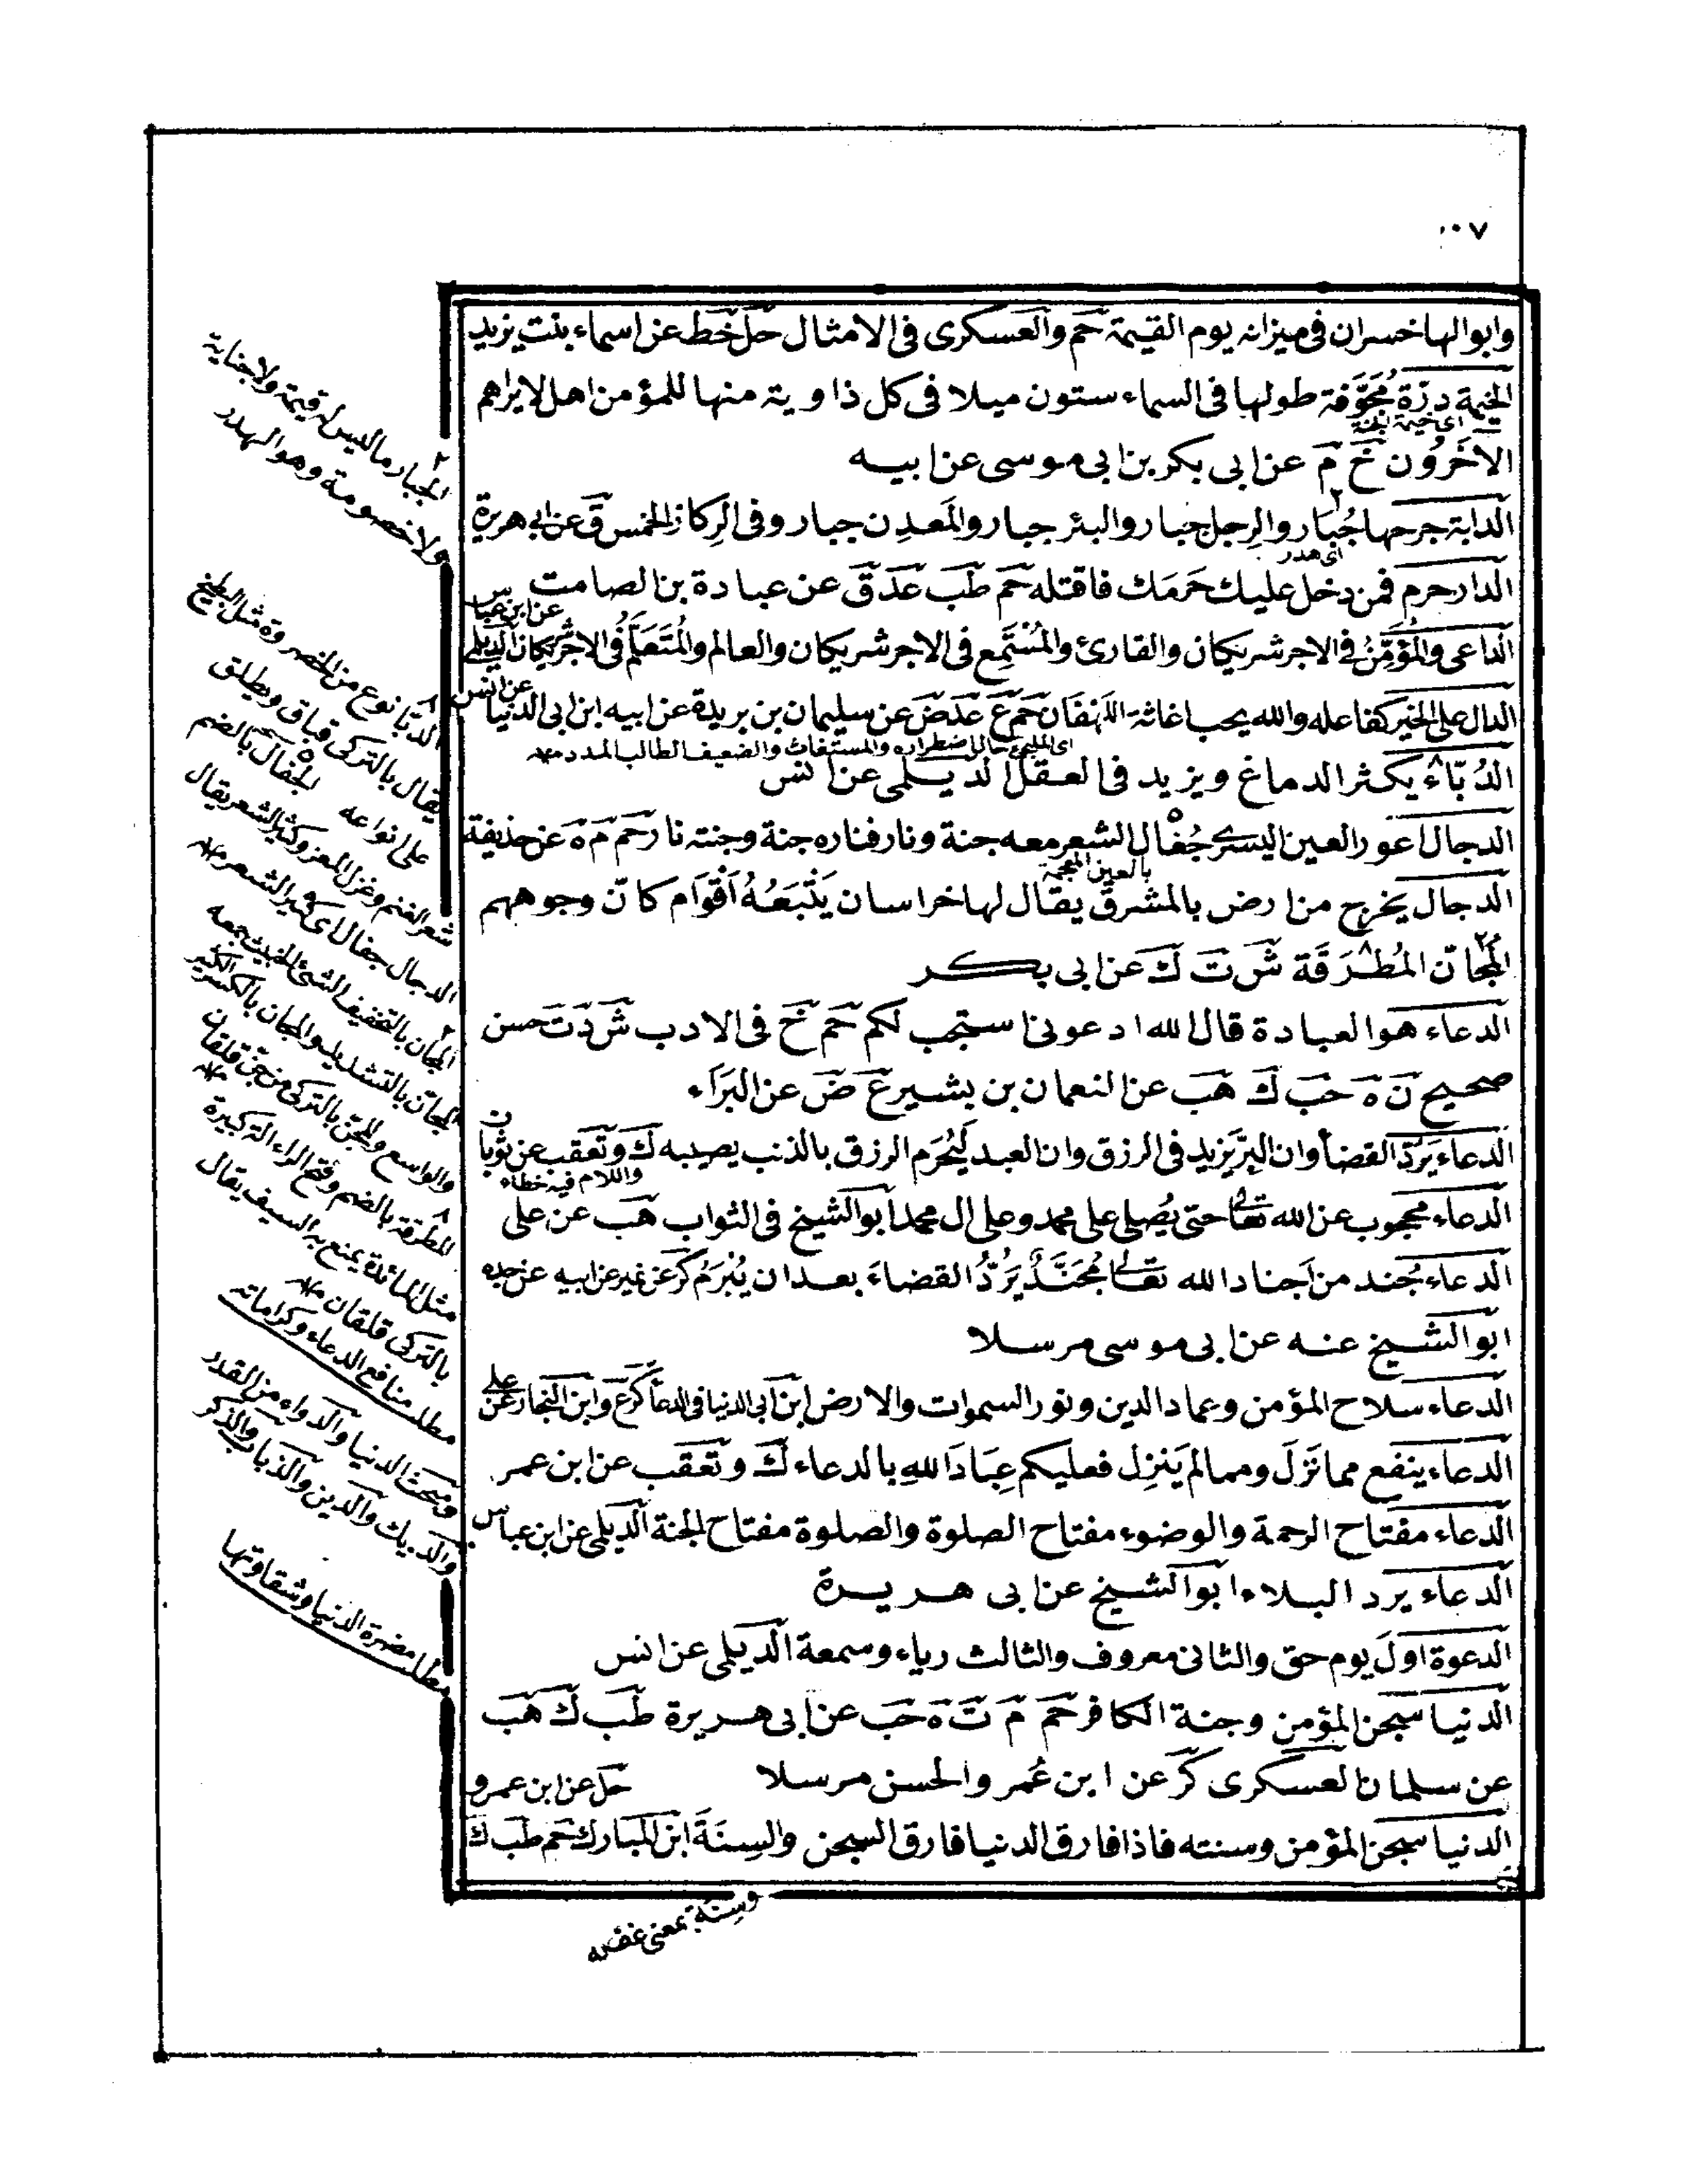 ٠٧
وابوالها خسران فى ميزانه يوم القيمة حم والعسكرى فى الامثال حل خط عن اسماء بنت يزيد
الخيمة درّة مُجَوَّفة طولها فى السماء ستون ميلا فى كل ذاوية منها للمؤمن اهل لايراهم
اى خيمة الجنة
الآخَرُون خ م عن ابى بكر بن ابى موسى عن ابيه
الدابة جرحها جُبَار والرجل جبار والبئر جبار والمَعدِن جبار وفى الرِكاز الخمس ق عن ابى هريرة
اى هدر
الدار حرم فمن دخل عليك حَرَمَك فاقتله حم طب عد ق عن عبادة بن الصامت
عن ابن عباس
الداعى والمُؤَمِّنُ فى الاجر شريكان والقارئ والمُسْتَمِع فى الاجر شريكان والعالم والمُتَعَلِّمُ فى الاجر شريكان الديلمى
عن انس
الدال على الخير كفاعله والله يحب اغاثة اللهفان حم ع عد ض عن سليمان بن بريدة عن ابيه ابن ابى الدنيا
اى الملهوف حال اضطراره والمستغاث والضعيف الطالب المدد منه
الدُبّاءُ يكثر الدماغ ويزيد فى العقل الديلمى عن انس
الدجال اعور العين اليسرى جُفَال الشعر معه جنة ونار فناره جنة وجنته نار حم م ه عن حذيفة
الدجال يخرج من ارض بالمشرق يقال لها خراسان يَتْبَعُهُ اَقْوَام كانّ وجوههم
المَجانّ المُطْرَقَة ش ت ك عن ابى بكر
الدعاء هو العبادة قال الله ادعونى استجب لكم حم خ فى الادب ش د ت حسن
صحيح ن ه حب ك هب عن النعمان بن بشير ع ض عن البَرَآء
الدعاء يَرُدّ القضأ وان البِرّ يزيد فى الرزق وان العبد لَيُحْرَم الرزق بالذنب يصيبه ك وتعقب عن ثوبان
واللام فيه خطاء
الدعاء محجوب عن الله تعالى حتى يُصلى على محمد وعلى ال محمد ابوالشيخ فى الثواب هب عن على
الدعاء جُند من اَجناد الله تعالى مُجَنَّدٌ يَرُدُّ القضاءَ بعد ان يُبْرَمَ كر عن نمير عن ابيه عن جده
ابوالشيخ عنه عن ابى موسى مرسلا
الدعاء سلاح المؤمن وعماد الدين ونور السموات والارض ابن ابى الدنيا فى الدعأ ك ع وابن النجار عن على
الدعاء ينفع مما نَزَلَ ومما لم يَنزِل فعليكم عِبَادَ اللهِ بالدعاء ك وتعقب عن ابن عمر
الدعاء مفتاح الرحمة والوضوء مفتاح الصلوة والصلوة مفتاح الجنة الديلمى عن ابن عباس
الدعاء يرد البلاء ابوالشيخ عن ابى هريرة
الدعوة اولَ يوم حق والثانى معروف والثالث رياء وسمعة الديلمى عن انس
الدنيا سجن المؤمن وجنة الكافر حم م ت ه حب عن ابى هريرة طب ك هب
عن سلمان العسكرى كر عن ابن عُمر والحسن مرسلا حل عن ابن عمرو
الدنيا سجن المؤمن وسنته فاذا فارق الدنيا فارق السجن والسِنَةَ ابن المبارك حم طب ك
وسِنَة بمعنى
الجبار ما ليس له قيمة ولا جناية
ولا خصومة وهو الهدر
الدبّا نوع من الخضروة مثل البطيخ
يقال بالتركى قباق ويطلق
على انواعه الجفال بالضم
شعر الغنم وغزل المعز وكثير الشعر يقال
الدجال جفال اى كثير الشعر منه
المجان بالتخفيف الشئ
المجانّ بالتشديد والمجان بالكسر
والواسع والمجنّ بالتركى قلقان
المطرقة بالضم وفتح الراء الة كبيرة
مثل المائدة يمنع به السيف يقال
بالتركى قلقان منه
مطلب منافع الدعاء وكراماته
ومبحث الدنيا والدواء من القدر
والديك والدين والذباب والذكر
مطلب مضرة الدنيا وشقاوتها